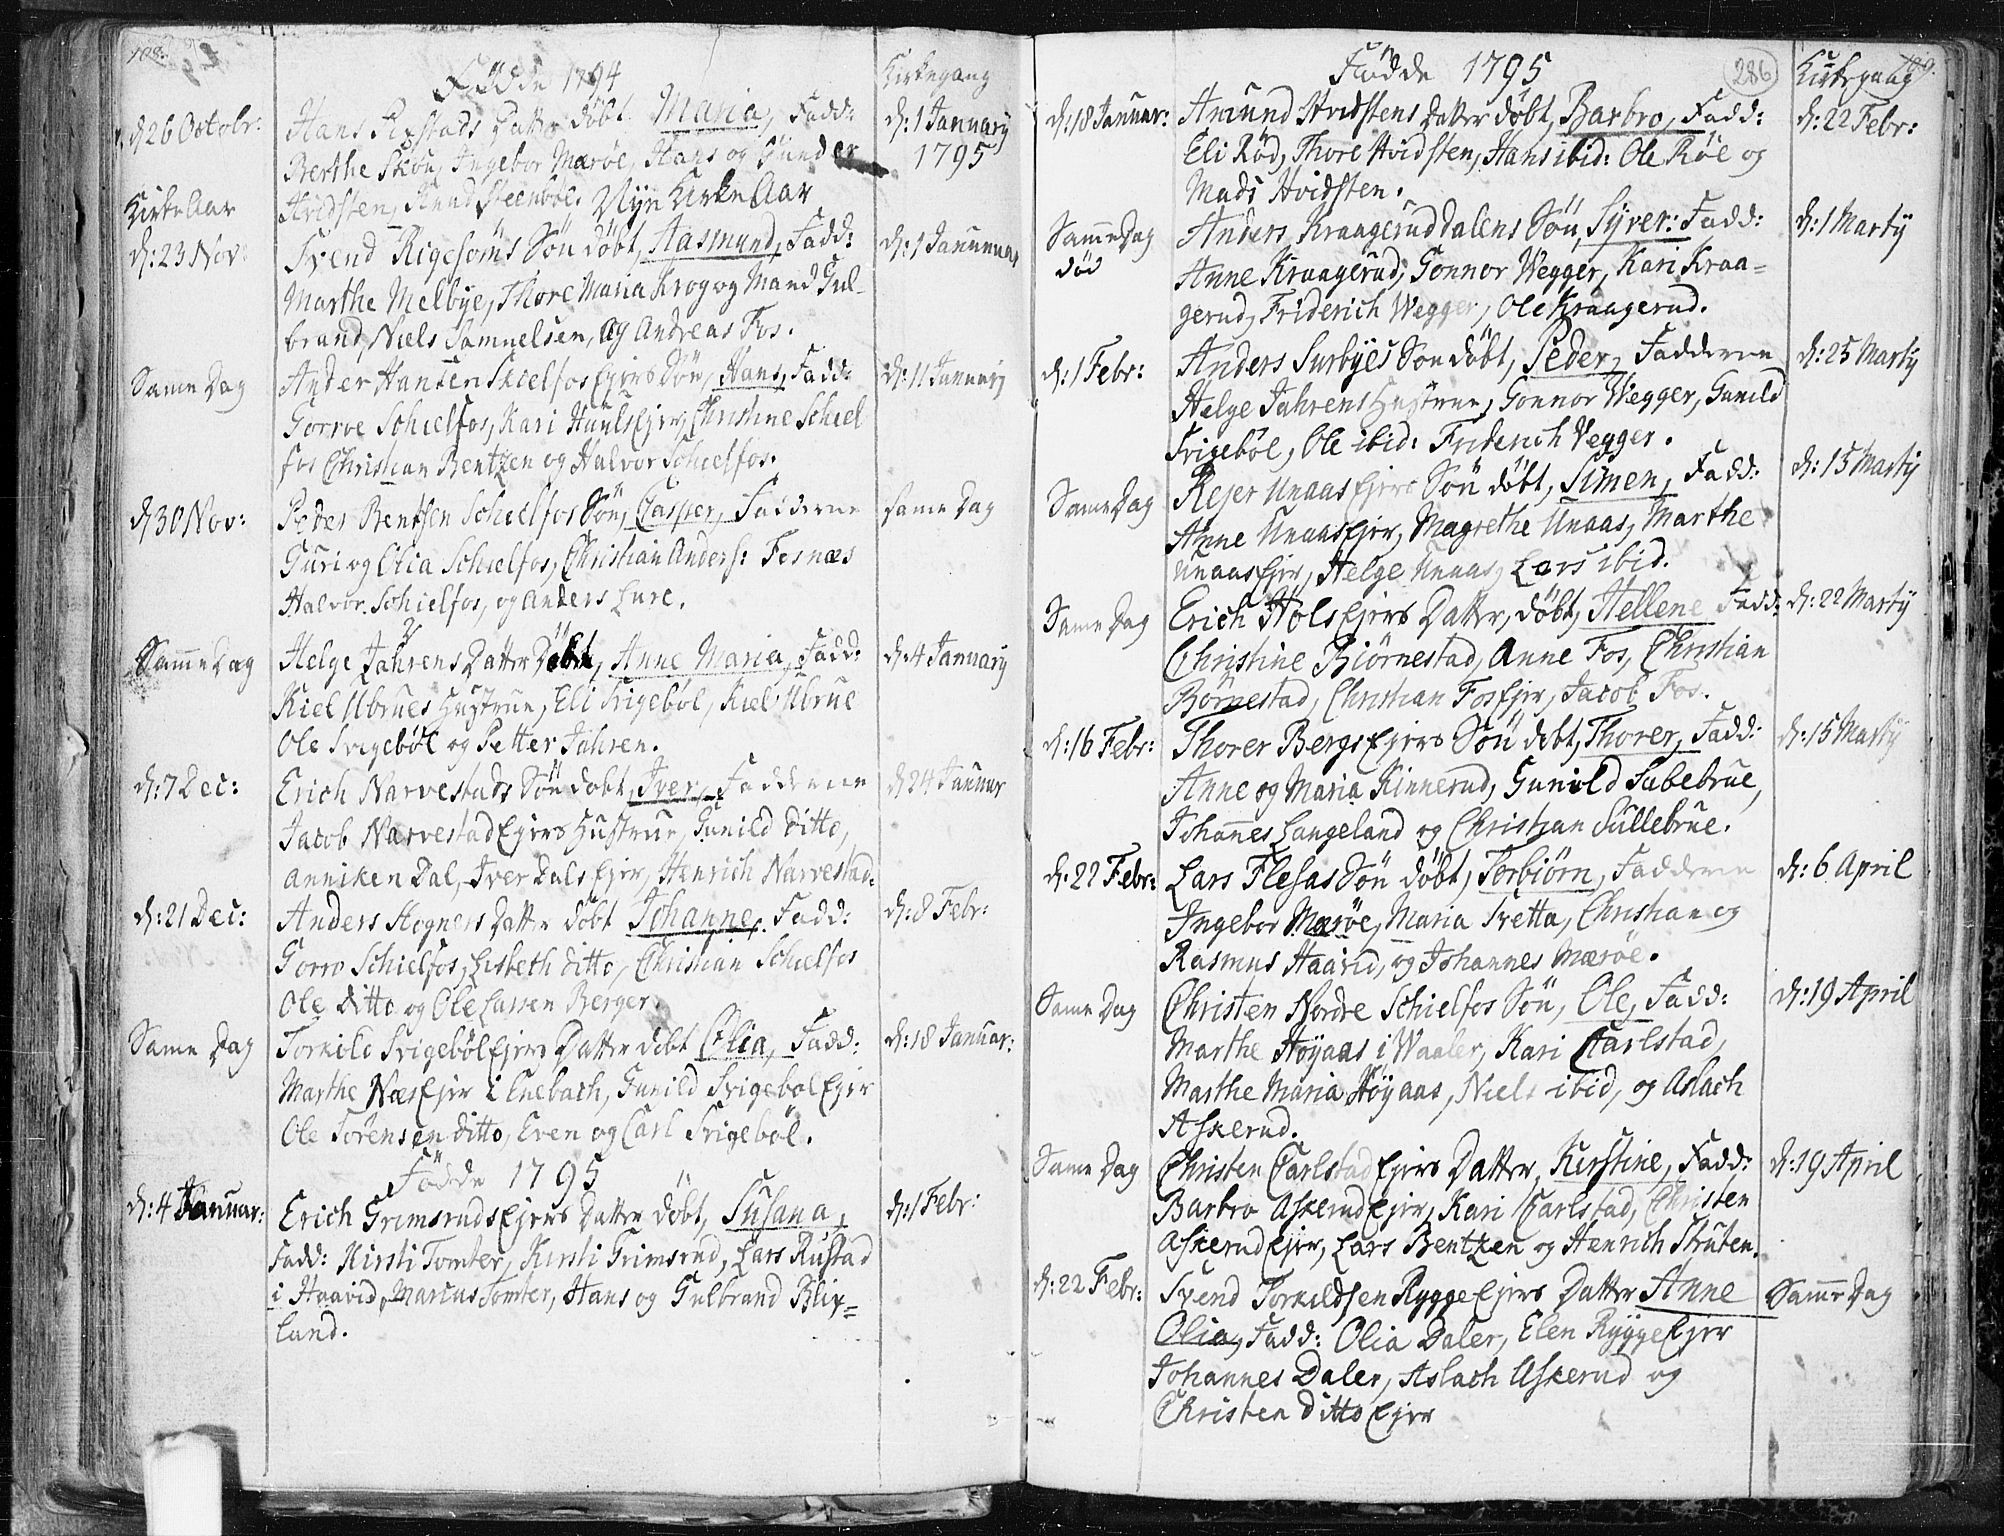 108.
Fødde 1794
Kirkegang
d: 26 Octobr: Hans Datter døbt Maria, Fadd: d: 1 January
Berthe Skou, Ingebor Mærøe, Hans og Gunder 1795
Hvidsten, Knud Steenbøl. Nye Kirke Aar
Kirke Aar
d: 23 Nov: Svend Rigesoms Søn døbt, Aasmund, Fadd: d: 1 Januuar
Marthe Melbye, Thore Maria Krog og Mand Gul-
brand, Niels Samuelsen, og Andreas Fos.
Same Dag Ander Hansen Skielfos Ejers Søn, Hans, Fadd: d: 11 January
Gorroe Schielfos, Kari Huuls Ejer, Christine Schiel
fos Christian Bentzen og Halvor Schielfos.
d: 30 Nov: Peder Bentsen Schielfos Søn, Casper, Fadderne same Dag
Guri og Olia Schielfos, Christian Anders: Fosnæs
Halvor Schielfos, og Anders Lure.
Samme Dag Helge Jahrens Datter Døbt, Anne Maria, Fadd: d: 4 January
Kiel Ubrues Hustrue, Eli Svigebøl, Kiel Ubrue
Ole Svigebøl og Petter Jahren.
d: 7 Dec: Erich Narvestads Søn døbt, Iver, Fadderne d: 24 Januar
Jacob Narvestad Ejers Hustrue, Gunild ditto,
Anniken Dal, Iver Dals Ejer, Henrich Narvestad.
d: 21 Dec: Anders Hogners Datter døbt Johanne, Fadd: d: 8 Febr:
Gorro Schielfos, Lisbeth ditto, Christian Schielfos
Ole Ditto og Ole Larsen Berger.
Same Dag Torkild Svigebøl Ejers Datter døbt Olia, Fadd: d: 18 Januar:
Marthe Næs Ejer i Enebach, Gunild Svigebøl Ejer
Ole Sørensen ditto, Even og Carl Svigebøl.
Fødde 1795
d: 4 Januar: Erich Grimsruds Ejers Datter døbt, Susana, d: 1 Febr:
Fadd: Kirsti Tomter, Kirsti Grimsrud, Lars Rustad
i Haavid, Marcus Tomter, Hans og Gulbrand Blix-
land.
Fødde 1795
286
Kirkegang
109.
d: 18 Januar: Amund Hvidstens Datter døbt, Barbro, Fadd: d: 22 Febr:
Eli Rød, Thore Hvidsten, Hans ibid: Ole Røe og
Mads Hvidsten.
Samme Dag Anders Kraagerud Dalens Søn, Syver: Fadd: d: 1 Marty
død
Anne Kraagerud, Gonnor Wegger, Kari Kraa-
gerud, Friderich Wegger, Ole Kraagerud.
d: 1 Febr: Anders Surbyes Søn døbt, Peder, Fadderne d: 25 Marty
Helge Jahrens Hustrue, Gonnor Wegger, Gunild
Svigebøl, Ole ibid: Friderich Vegger.
Same Dag Rejer Unaas Ejers Søn døbt, Simen, Fadd: d: 15 Marty
Anne Unaas Ejer, Magrethe Unaas, Marthe
Unaas Ejer, Helge Unaas, Lars ibid.
Same Dag Erich Hols Ejers Datter, døbt, Hellene Fadd: d: 22 Marty
Christine Biørnestad, Anne Fos, Christian
Børnestad, Christian Fos Ejer, Jacob Fos.
d: 16 Febr: Thorer Bergs Ejers Søn døbt, Thorer, Fadd: d: 15 Marty
Anne og Maria Kinnerud, Gunild Sabebrue,
Johannes Langeland og Christian Sullebrue.
d: 22 Febr: Lars Flesas Søn døbt, Torbiørn, Fadderne d: 6 April
Ingebor Mærøe, Maria Tvetta, Christian og
Rasmus Haavid, og Johannes Mærøe.
Same Dag Christen Nordre Schielfos Søn, Ole, Fadd: d: 19 April
Marthe Høyaas i Waaler, Kari Carlstad,
Marthe Maria Høyaas, Niels ibid, og Aslach
Askerud.
Same Dag Christen Carlstad Ejers Datter, Kirstine, Fadd: d: 19 April
Barbro Askerud Ejer, Kari Carlstad, Christen
Askerud Ejer, Lars Bentzen og Henrich Struten.
d: 22 Febr: Svend Torkildsen Rygge Ejers Datter Anne Samme Dag
Olia, Fadd: Olia Daler, Elen Rygge Ejer
Johannes Daler, Aslach Askerud og
Christen ditto Ejer